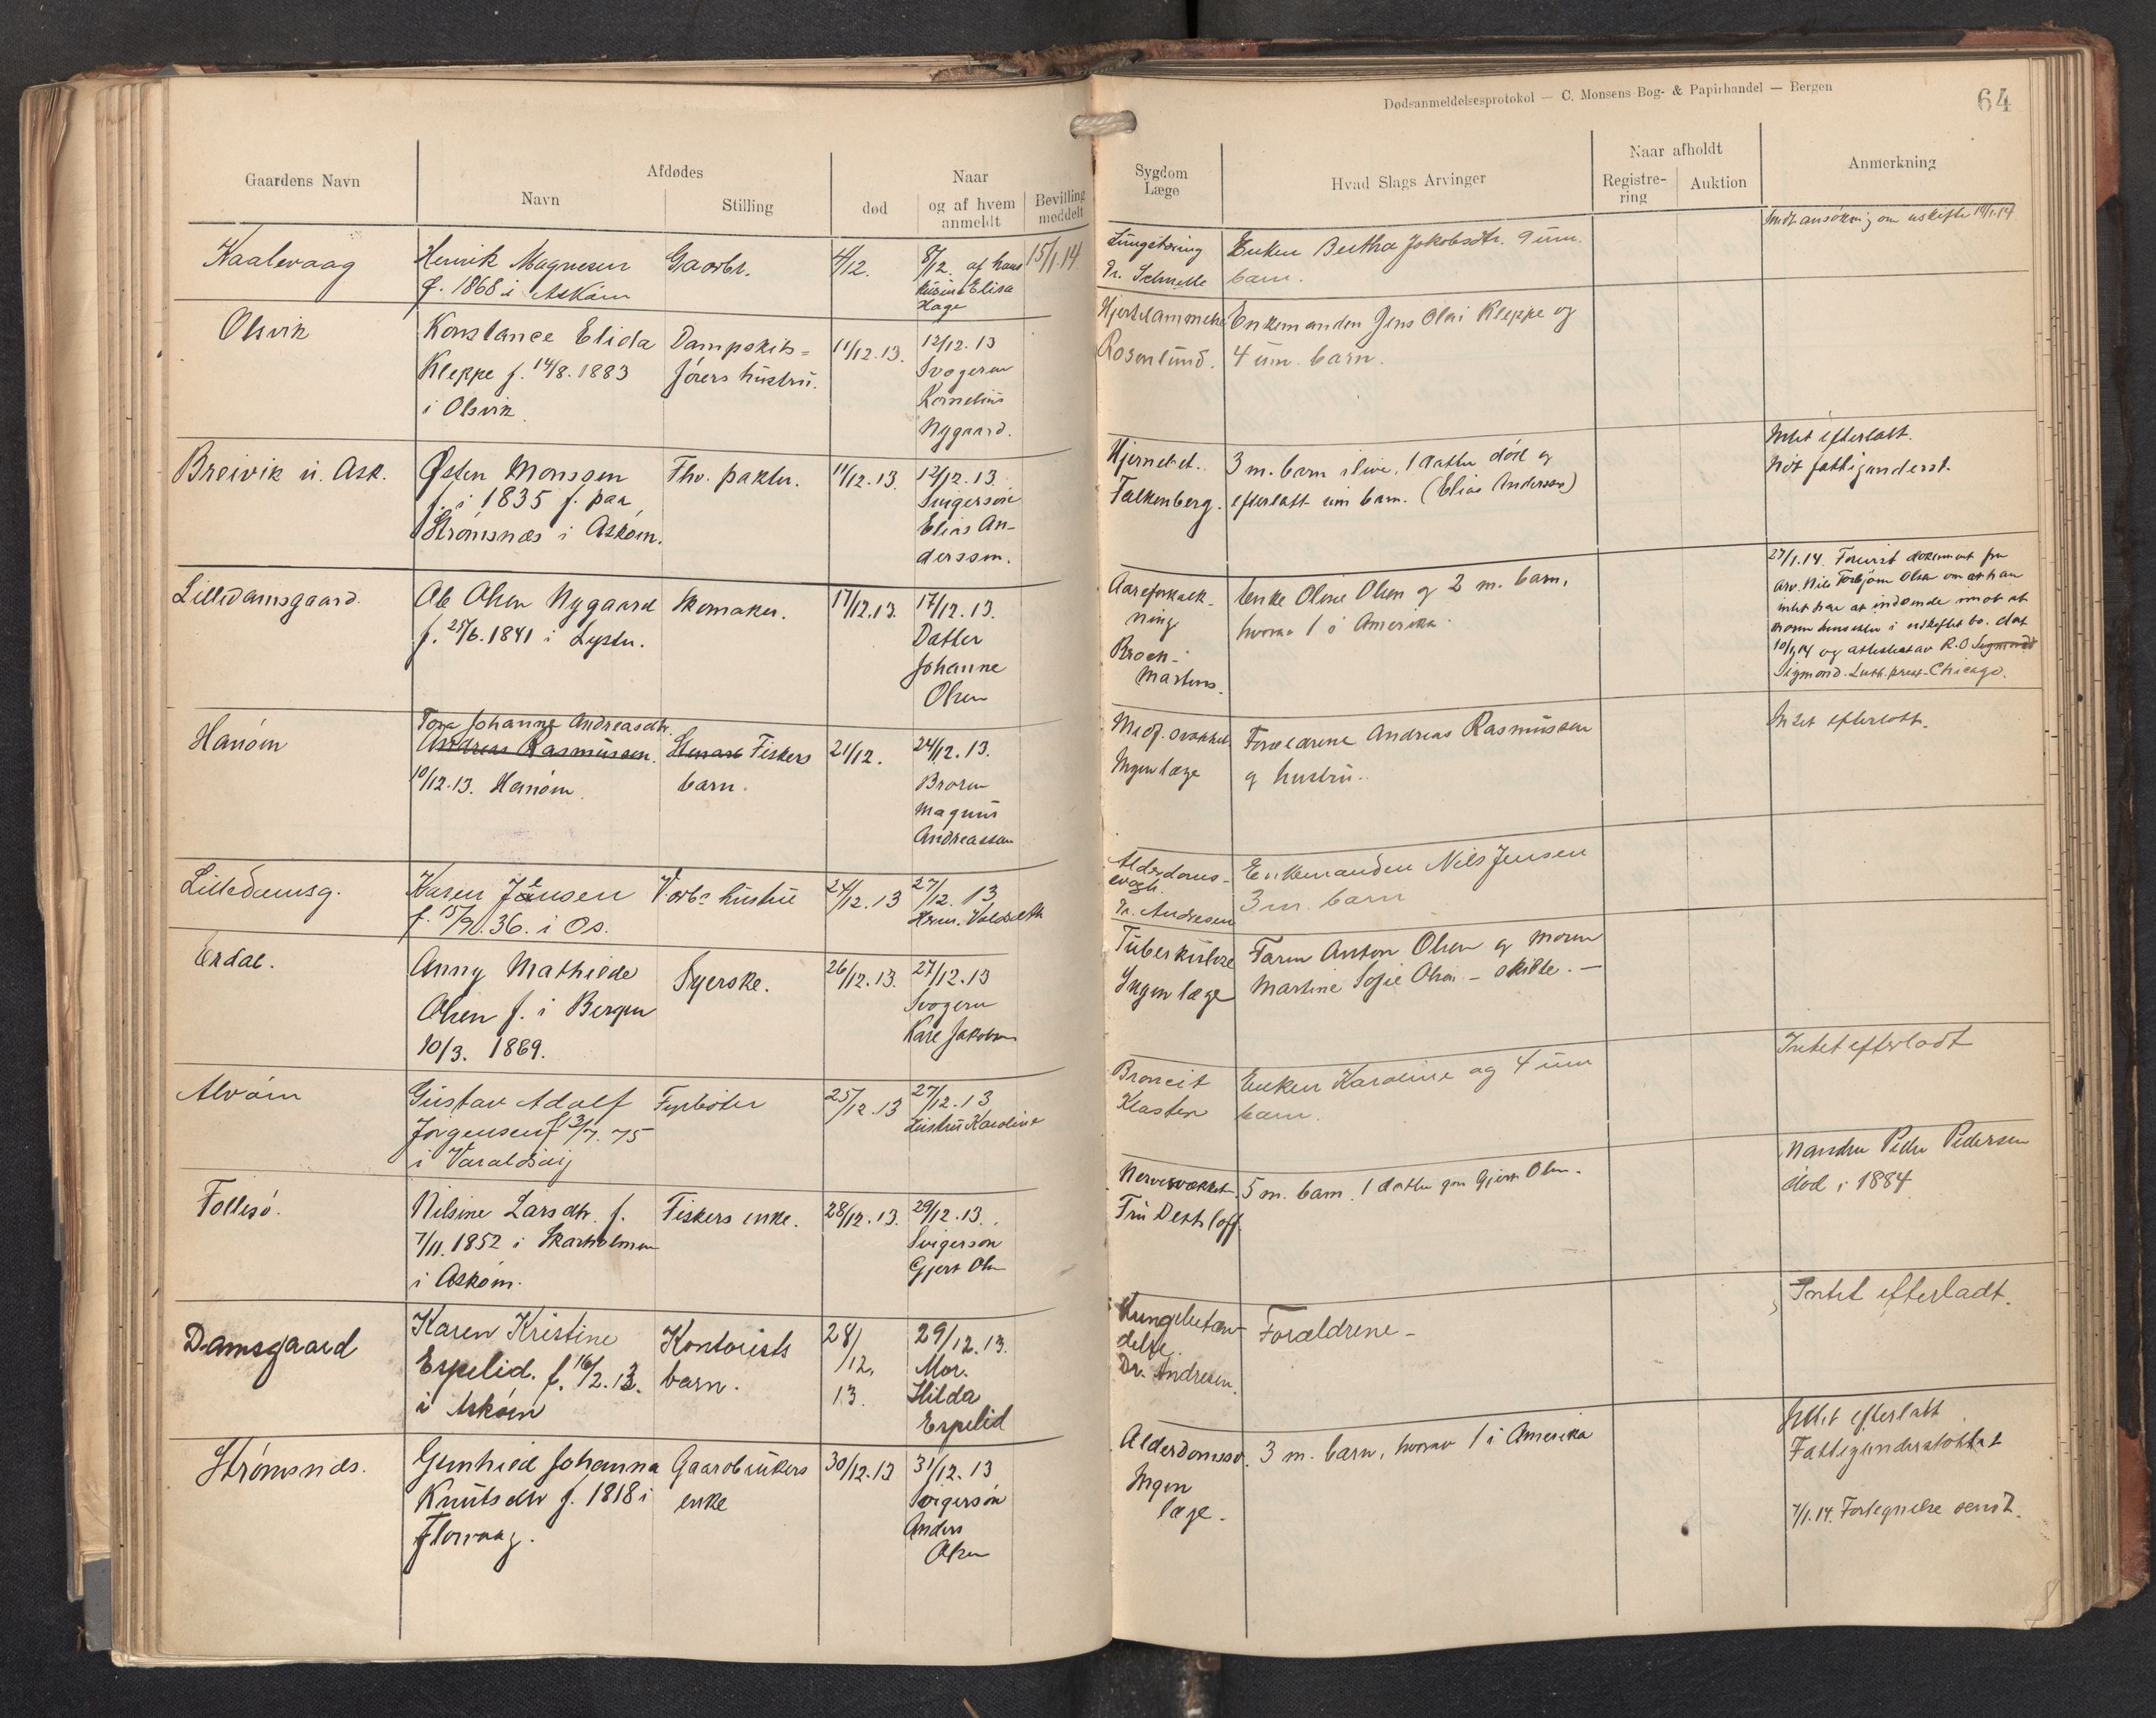 Dødsanmeldelsesprotokol — C. Monsens Bog- & Papirhandel — Bergen
64
Gaardens Navn
Afdødes
Navn
Stilling
død
Naar
og af hvem
anmeldt
Bevilling
meddelt
Sygdom
Læge
Hvad Slags Arvinger
Naar afholdt
Registre-
ring
Auktion
Anmerkning
Kaalevaag
Henrik Magnesen
f. 1868 i Askøen
Gaarbr.
4/12.
8/12. af hans
kusine Elisa
Hage
15/1.14
Lungetæring
Dr. Schnelle
Enken Bertha Jakobsdtr. 9 um.
barn.
Sendt ansökning om uskifte 14/1.14
Olsvik
Konstance Elida
Kleppe f. 14/8. 1883
i Olsvik
Dampskibs=
förers hustru.
11/12. 13.
12/12. 13
Svogeren
Kornelius
Nygaard.
Hjertelammelse
Rosenlund.
Enkemanden Jens Olai Kleppe og
4 um. barn.
Breivik u. Ask.
Østen Monssen
f. i 1835 f. paa
Strømsnæs i Askøen.
Fhv. pakter.
11/12. 13.
12/12. 13.
Svigersön
Elias An-
derssen.
Hjernebet.
Falkenberg.
3 m. barn ilive, 1 datter död og
efterlatt um barn. (Elias Anderssen)
Intet efterlatt.
Nöt fattigunderst.
Lilledamsgaard.
Ole Olsen Nygaard
f. 25/6. 1841 i Lyster.
Skomaker.
17/12. 13.
17/12. 13.
Datter
Johanne
Olsen
Aareforkalk-
ning
Broch-
Martens.
Enke Oline Olsen og 2 m. barn,
hvorav 1 i Amerika.
27/1.14. Forevist dokument fra
arv. Nils Torbjørn Olsen om at han
intet har at indvende mot at
moren hensitter i uskiftet bo. dat
10/1.14 og attestert av R.O Sigmond
Sigmond. Luth. prest- Chicago.
Hanöen
Tora Johanne Andreasdtr.
Andreas Rasmussen.
10/12. 13. Hanöen
Fiskers
barn.
21/12.
24/12. 13.
Broren
Magnus
Andreassen
Medf. svakhet
Ingen læge
Forældrene Andreas Rasmussen
og hustru.
Intet efterlatt.
Lilledamsg.
Karen Jensen
f. 15/9. 36. i Os.
hustru
24/12. 13
27/12. 13
Alderdoms-
svagh.
Dr. Andresen
Enkemanden Nils Jensen
3 m. barn
Erdal.
Anny Mathilde
Olsen f. i Bergen
10/3. 1889.
Syerske.
26/12. 13.
27/12. 13
Svogeren
Karl Jakobsen
Tuberkulose
Ingen læge
Faren Anton Olsen og moren
Martine Sofie Olsen - skilte. -
Alvöen
Gustav Adolf
Jørgensen f 13/7. 75
i Varaldsöy
Fyrböter
25/12. 13
27/12. 13
hustru Karoline
Broncit
Klasten
Enken Karoline og 4 um
barn.
Intet efterladt
Follesö.
Nilsine Larsdtr. f.
7/11. 1852 i Skarholmen
i Askøen.
Fiskers enke.
28/12. 13.
29/12. 13.
Svigersön
Gjert Olsen
Nervesvækkelse.
Fru Dethloff.
5 m. barn. 1 datter gm Gjert Olsen.
Manden Peder Pedersen
död i 1884
Damsgaard
Karen Kristine
Espelid. f. 16/2. 13.
i Askøen
Kontorists
barn.
28/
12,
13.
29/12. 13.
Mor.
Hilda
Espelid
Lungebetæn-
delse.
Dr. Andresen.
Forældrene -
Intet efterladt.
Strømsnæs.
Gunhild Johanna
Knutsdtr f. 1818 i
Florvaag.
Gaardbrukers
enke
30/12. 13
31/12. 13
Svigersön
Anders
Olsen
Alderdomssv.
Ingen
læge.
3 m. barn, hvorav 1 i Amerika
Intet efterlatt
Fattigunderstöttet
7/1. 14. Fortegnelse sendt.